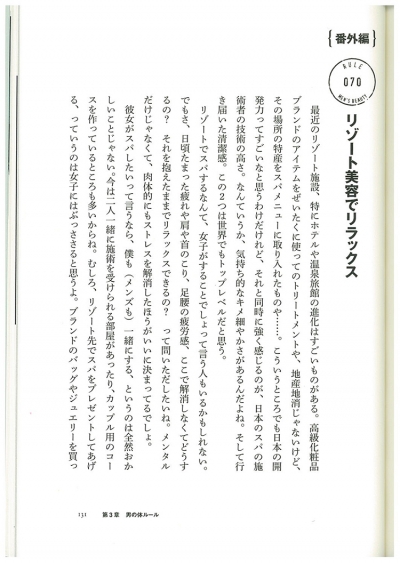 {番外編}
RULE
070
MEN'S BEAUTY
リゾート美容でリラックス
最近のリゾート施設、特にホテルや温泉旅館の進化はすごいものがある。高級化粧品
ブランドのアイテムをぜいたくに使ってのトリートメントや、地産地消じゃないけど、
その場所の特産をスパメニューに取り入れたものや……。こういうところでも日本の開
発力ってすごいなと思うわけだけれど、それと同時に強く感じるのが、日本のスパの施
術者の技術の高さ。なんていうか、気持ち的なキメ細やかさがあるんだよね。そして行
き届いた清潔感。この2つは世界でもトップレベルだと思う。
リゾートでスパするなんて、女子がすることでしょって言う人もいるかもしれない。
でもさ、日頃たまった疲れや肩や首のこり、足腰の疲労感、ここで解消しなくてどうす
るの？　それを抱えたままでリラックスできるの？　って問いただしたいね。メンタル
だけじゃなくて、肉体的にもストレスを解消したほうがいいに決まってるでしょ。
彼女がスパしたいって言うなら、僕も（メンズも）一緒にする、というのは全然おか
しいことじゃない。今は二人一緒に施術を受けられる部屋があったり、カップル用のコー
スを作っているところも多いからね。むしろ、リゾート先でスパをプレゼントしてあげ
る、っていうのは女子にはぶっささると思うよ。ブランドのバッグやジュエリーを買っ
131　第3章　男の体ルール